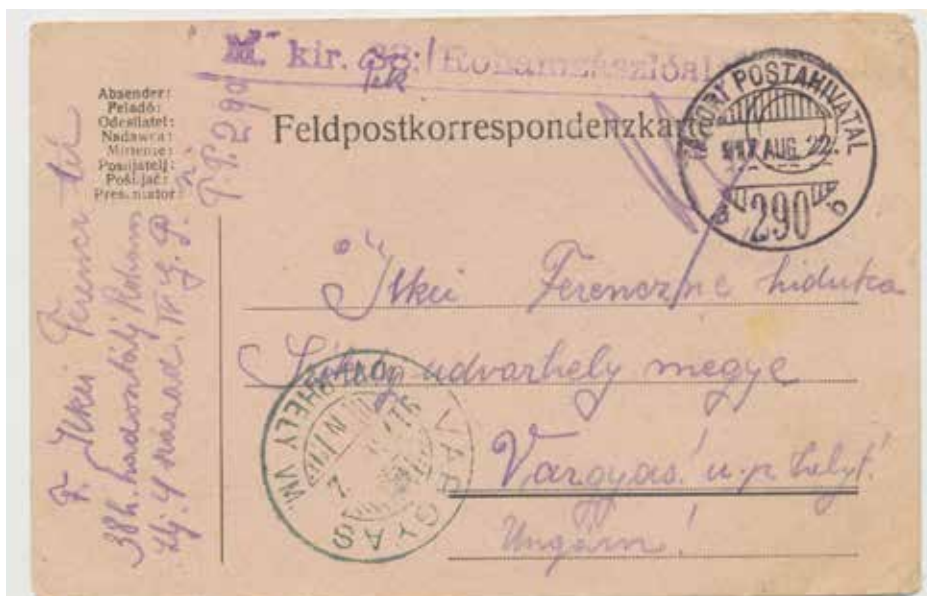 M. kir. 38. Rohamzászlóalj
Absender:
Feladó:
Odesilatel:
Nadawca:
Posiljatelj:
Pošiljač:
T.P. 290
Feldpostkorrespondenzkarte
TÁBORI POSTAHIVATAL
917 AUG. 22.
a b
290
F. Ilkei Ferencz
38 h. hadosztálj Roham
zlj. 4 század.
Ilkei Ferenczné hidutca
udvarhely megye
Vargyas! u. p. helyt!
Ungarn!
VARGYAS
UDVARHELY VM.